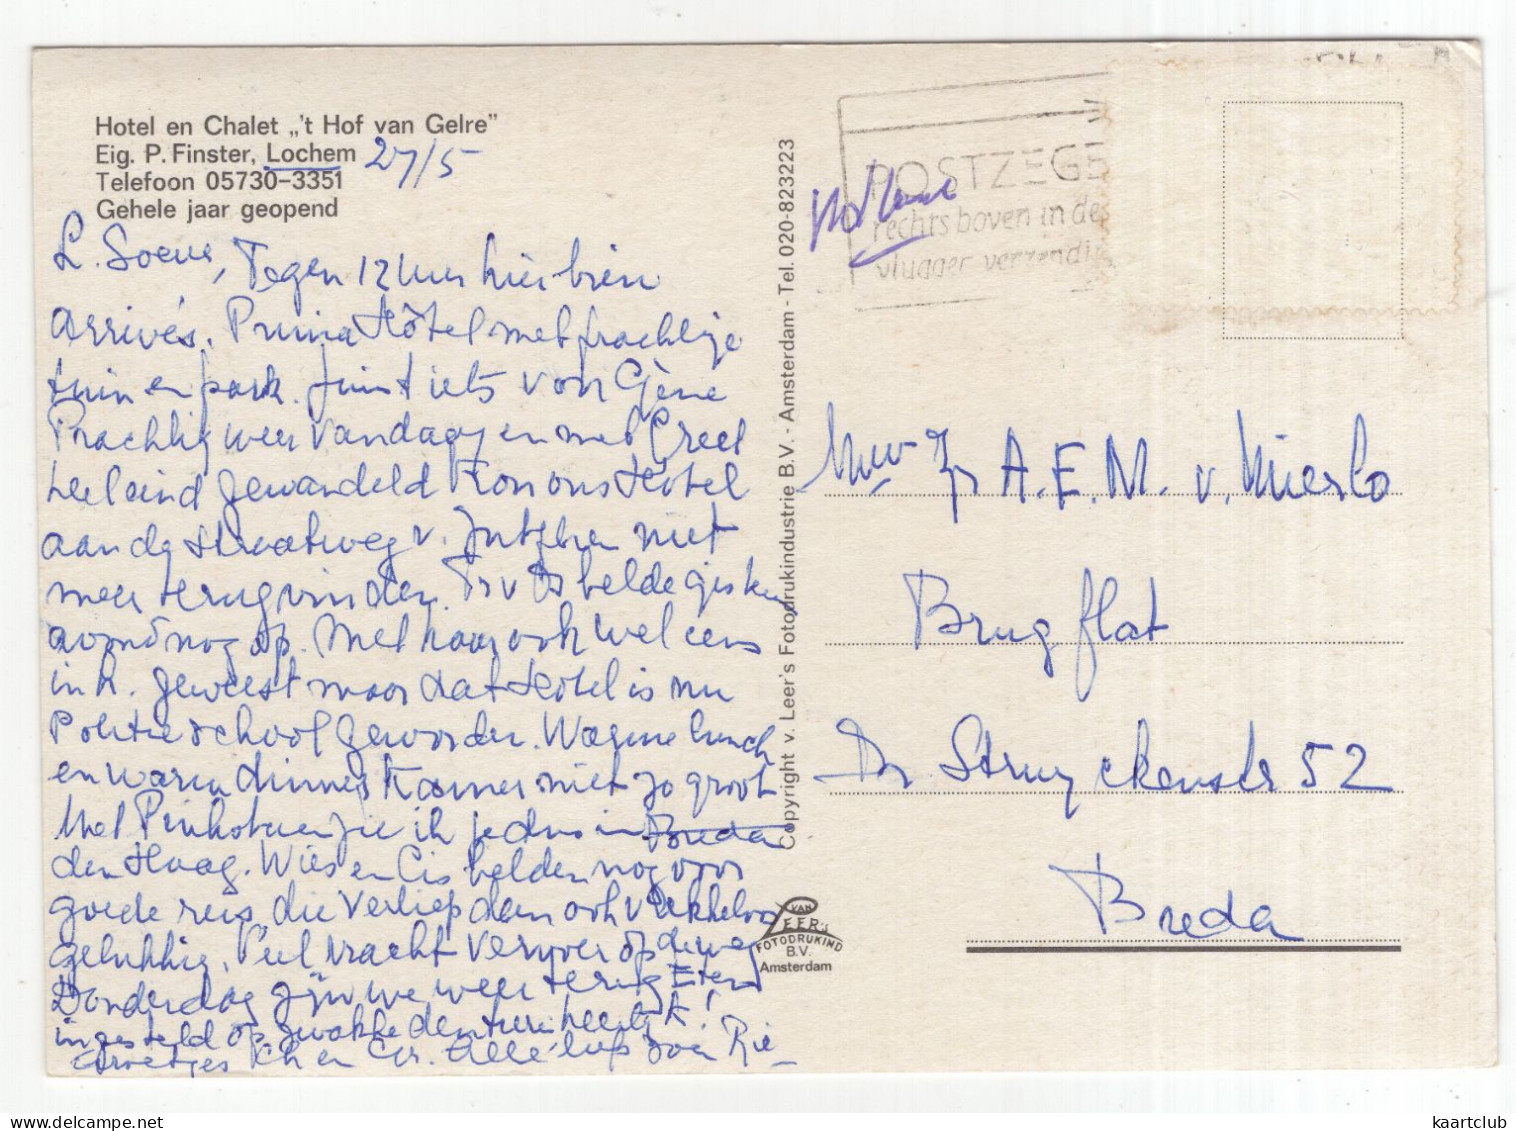 Hotel en Chalet „'t Hof van Gelre”
Eig. P. Finster, Lochem 27/5
Telefoon 05730-3351
Gehele jaar geopend
Tegen 12 uur hier bien
arrivés. Prima Hôtel met prachtige
tuin en park. Juist iets voor Gène
Prachtig weer vandaag en met Greet
heel eind gewandeld Kon ons Hotel
aan de straatweg v. Zutphen niet
meer terugvinden. Tr v B belde gister
avond nog op. Met haar ook wel eens
in h. geweest maar dat Hotel is nu
Politieschool geworden. Warme lunch
en warm dinner Kamer niet zo groot
Met Pinksteren zie ik jedus in Breda
den Haag. Wies en Cis belden nog voor
goede reis, die verliep dan ook vlekkeloos
gelukkig. Veel vracht vervoer op de weg
Donderdag zijn we weer terug Eten
ingesteld op zwakke denturen heerlijk!
Groetjes Ch en Gr. Alle liefs van Rie
POSTZEGE
rechts boven in de
vlugger verzendi
Copyright v. Leer's Fotodrukindustrie B.V. - Amsterdam - Tel. 020-823223
VAN
LEER'S
FOTODRUKIND
B.V.
Amsterdam
Mevr Jr A.E.M. v. Mierlo
Brugflat
Dr. Struyckenstr 52
Breda
kaartclub